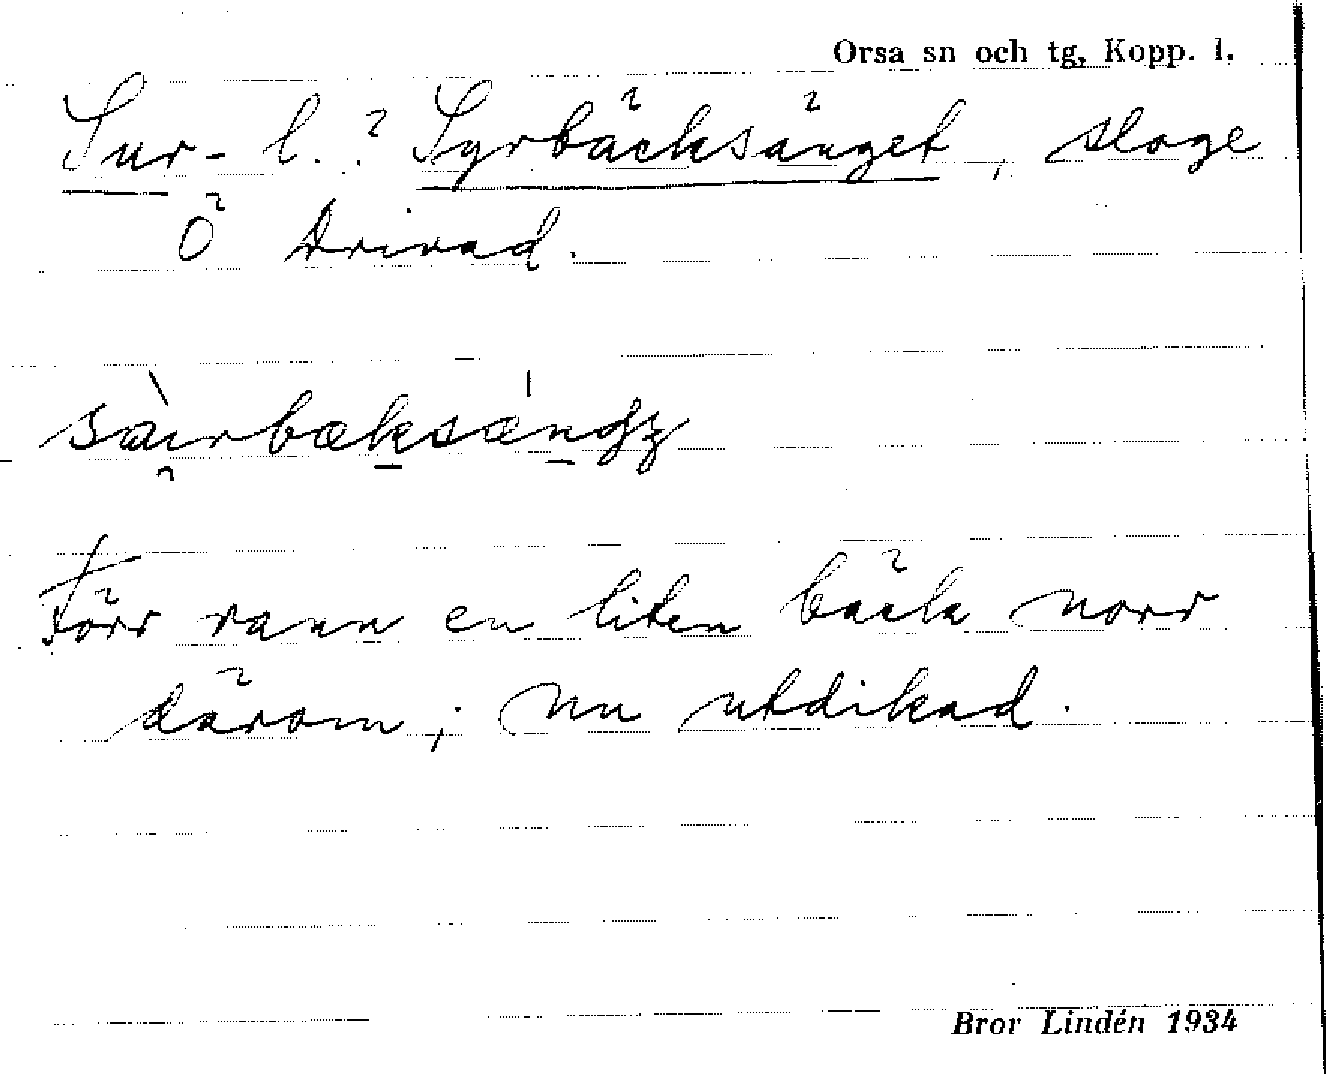 Orsa sn och tg, Kopp. l.
Sur- l. ? Syrbäcksänget, sloge
Ö Arivad.
Förr rann en liten bäck norr
därom; nu utdikad.
Bror Lindén 1934